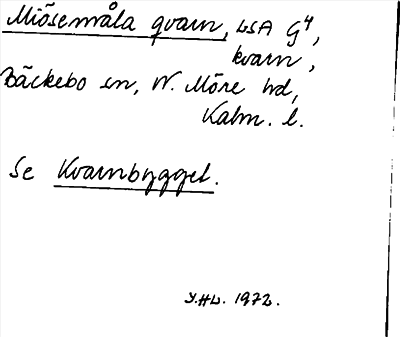 Miösemåla qvarn, LSA G4,
kvarn,
Bäckebo sn, N. Möre hd,
Kalm. l.
Se Kvarnbygget.
Y.HL. 1972.